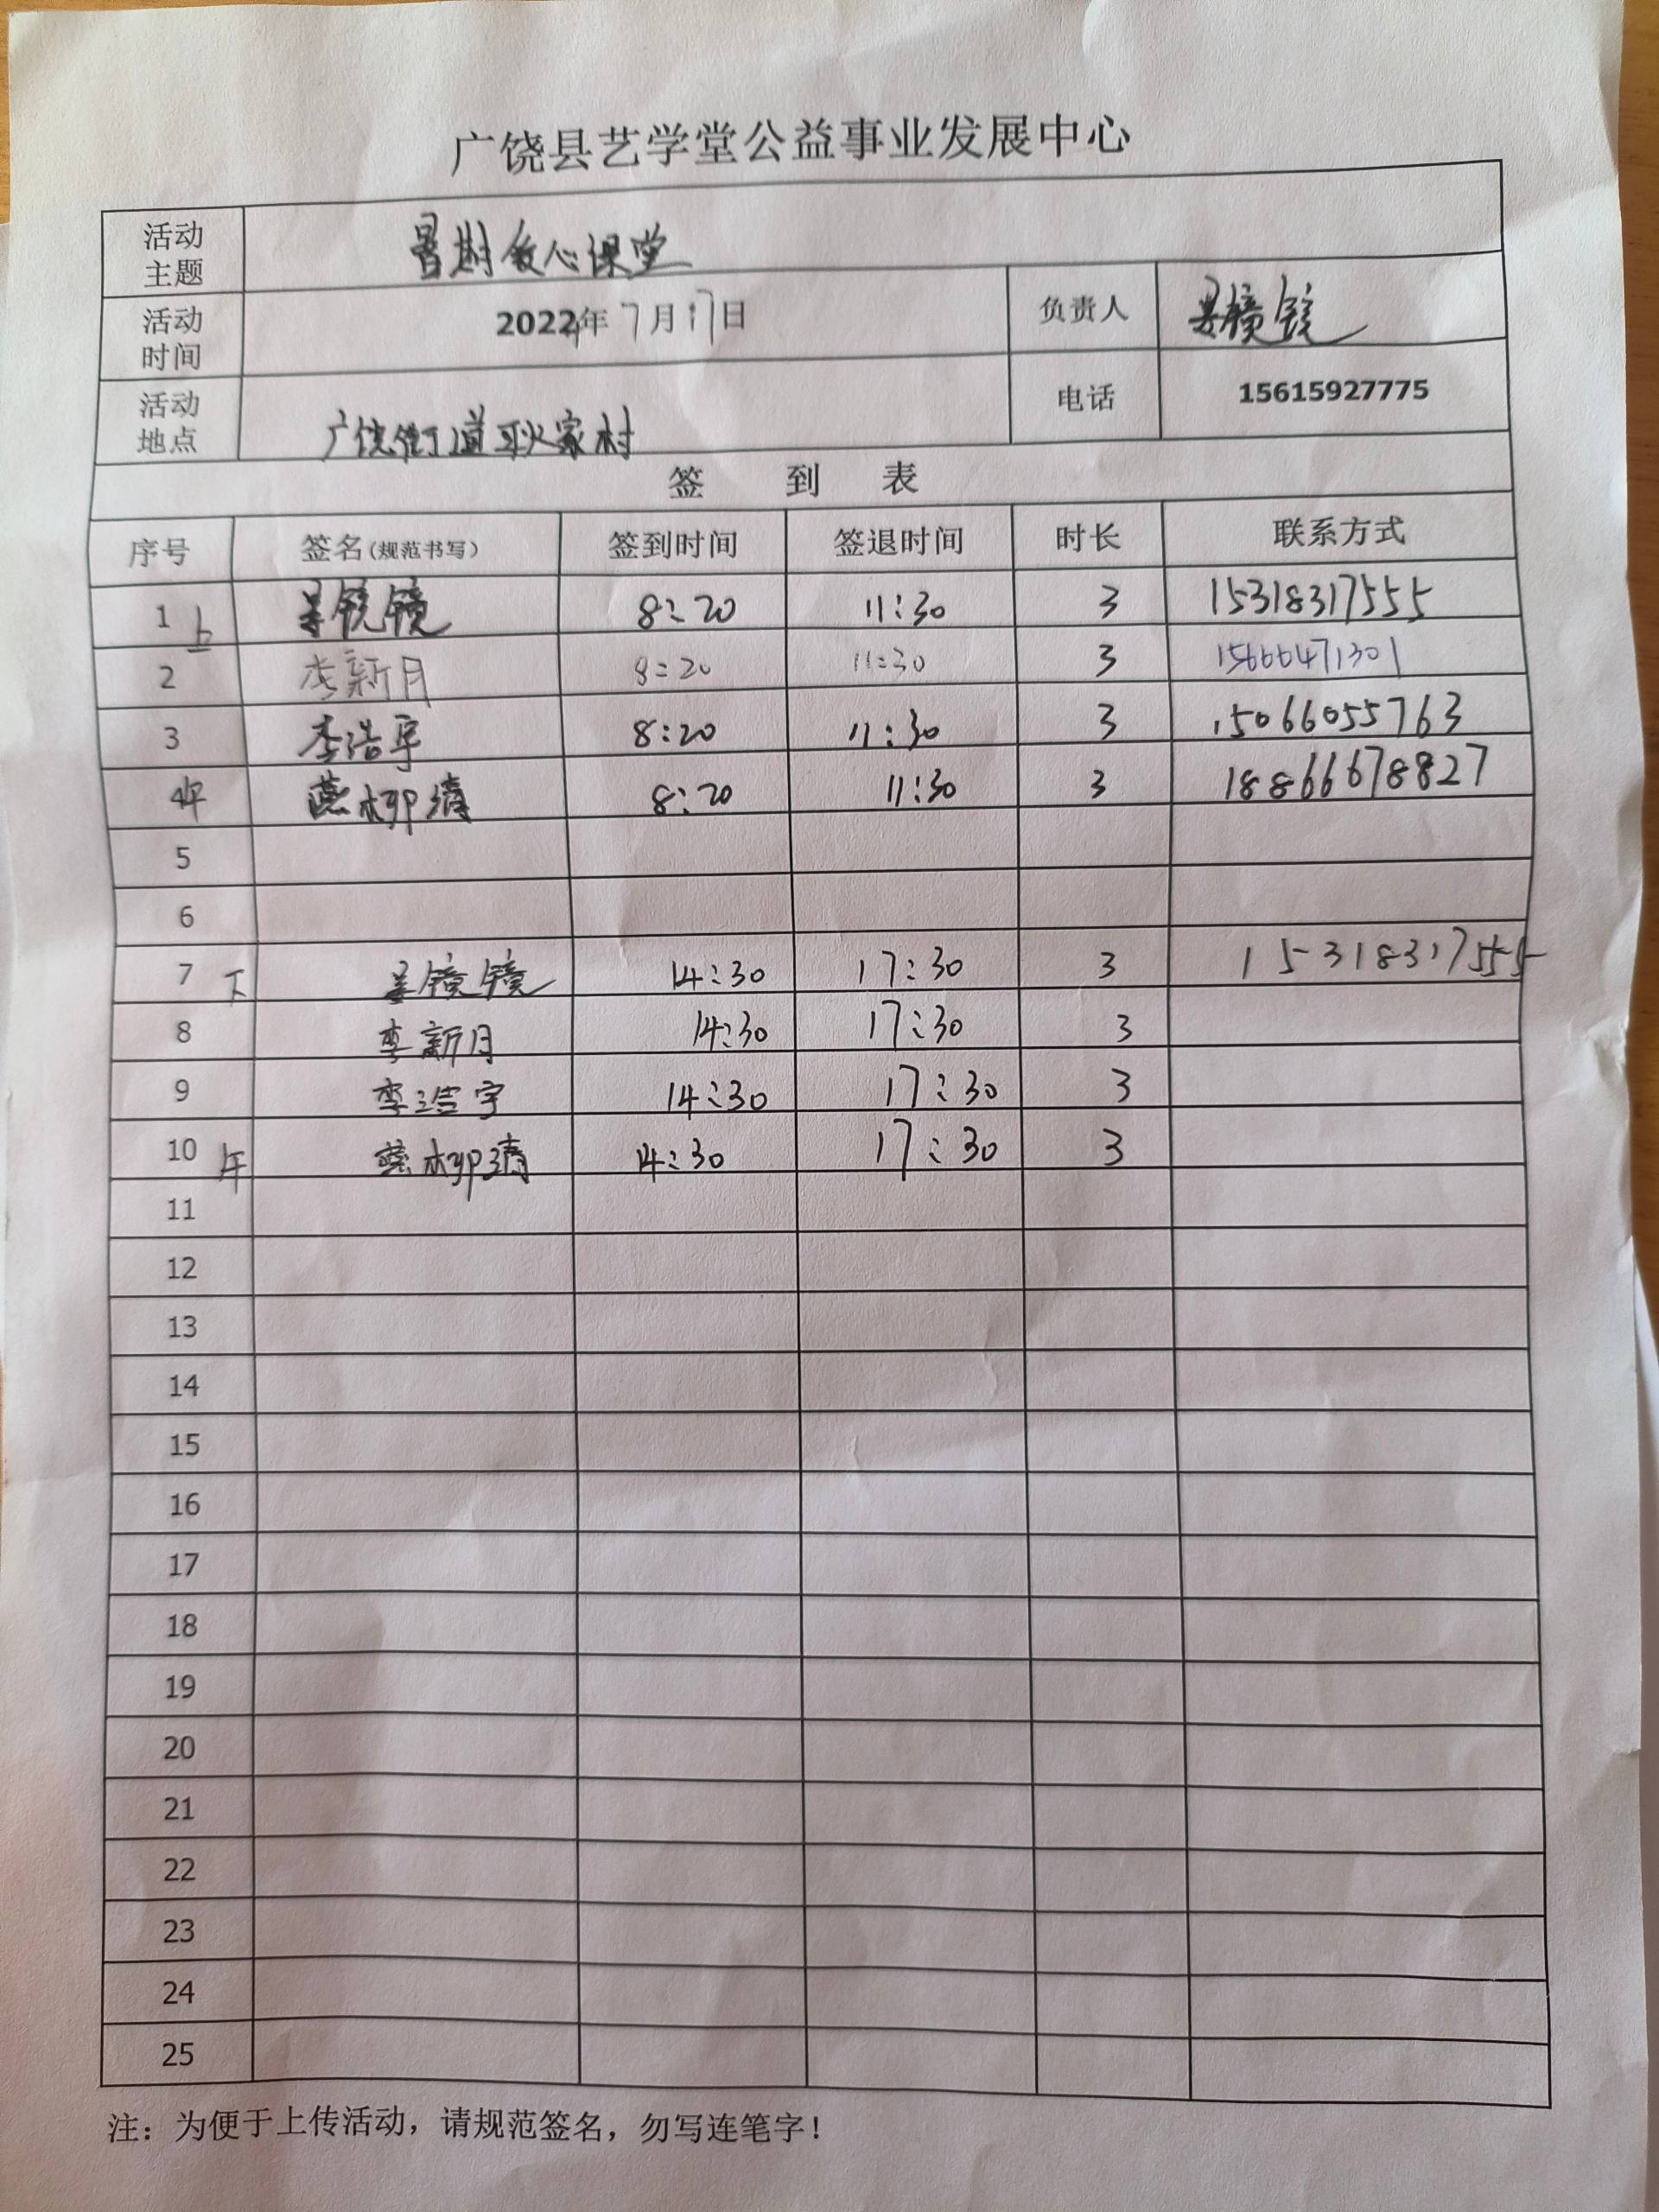 广饶县艺学堂公益事业发展中心
活动主题 暑期爱心课堂
活动时间 2022年7月17日 负责人
活动地点 广饶街道耿家村 电话 15615927775
签 到 表
序号 签名(规范书写) 签到时间 签退时间 时长 联系方式
1 上 镜镜 8:20 11:30 3 15318317555
2 李新月 8:20 11:30 3 15666471301
3 李浩宇 8:20 11:30 3 15066055763
4 午 燕柳清 8:20 11:30 3 18866678827
5
6
7 下 镜镜 14:30 17:30 3 15318317555
8 李新月 14:30 17:30 3
9 李浩宇 14:30 17:30 3
10 午 燕柳清 14:30 17:30 3
11
12
13
14
15
16
17
18
19
20
21
22
23
24
25
注：为便于上传活动，请规范签名，勿写连笔字！